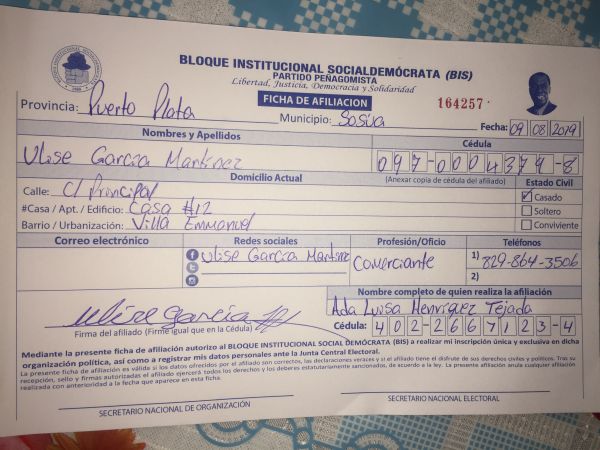 BLOQUE INSTITUCIONAL SOCIALDEMÓCRATA (BIS)
PARTIDO PEÑAGOMISTA
Libertad, Justicia, Democracia y Solidaridad
FICHA DE AFILIACION
164257
Provincia: Puerto Plata
Municipio: Sosúa
Fecha: 09 08 2019
Nombres y Apellidos
Cédula
Ulise García Martinez
097-0004379-8
Domicilio Actual
(Anexar copia de cédula del afiliado)
Estado Civil
Calle: C/ Principal
Casado
#Casa / Apt. / Edificio: Casa #12
Soltero
Barrio / Urbanización: Villa Emmanuel
Conviviente
Correo electrónico
Redes sociales
Profesión/Oficio
Teléfonos
Ulise García Martinez
Comerciante
1) 829-864-3506
2)
Nombre completo de quien realiza la afiliación
Ada Luisa Henríquez Tejada
Ulise García
Firma del afiliado (Firme igual que en la Cédula)
Cédula: 402-2667123-4
Mediante la presente ficha de afiliación autorizo al BLOQUE INSTITUCIONAL SOCIALDEMÓCRATA (BIS) a realizar mi inscripción única y exclusiva en dicha
organización política, así como a registrar mis datos personales ante la Junta Central Electoral.
La presente ficha de afiliación es válida si los datos ofrecidos por el afiliado son correctos, las declaraciones veraces y si el afiliado tiene el disfrute de sus derechos civiles y políticos. Tras su
recepción, sello y firmas autorizadas el afiliado ejercerá todos los derechos y los deberes estatutariamente sancionados, de acuerdo a la ley. La presente afiliación anula cualquier afiliación
realizada con anterioridad a la fecha que aparece en esta ficha.
SECRETARIO NACIONAL DE ORGANIZACIÓN
SECRETARIO NACIONAL ELECTORAL